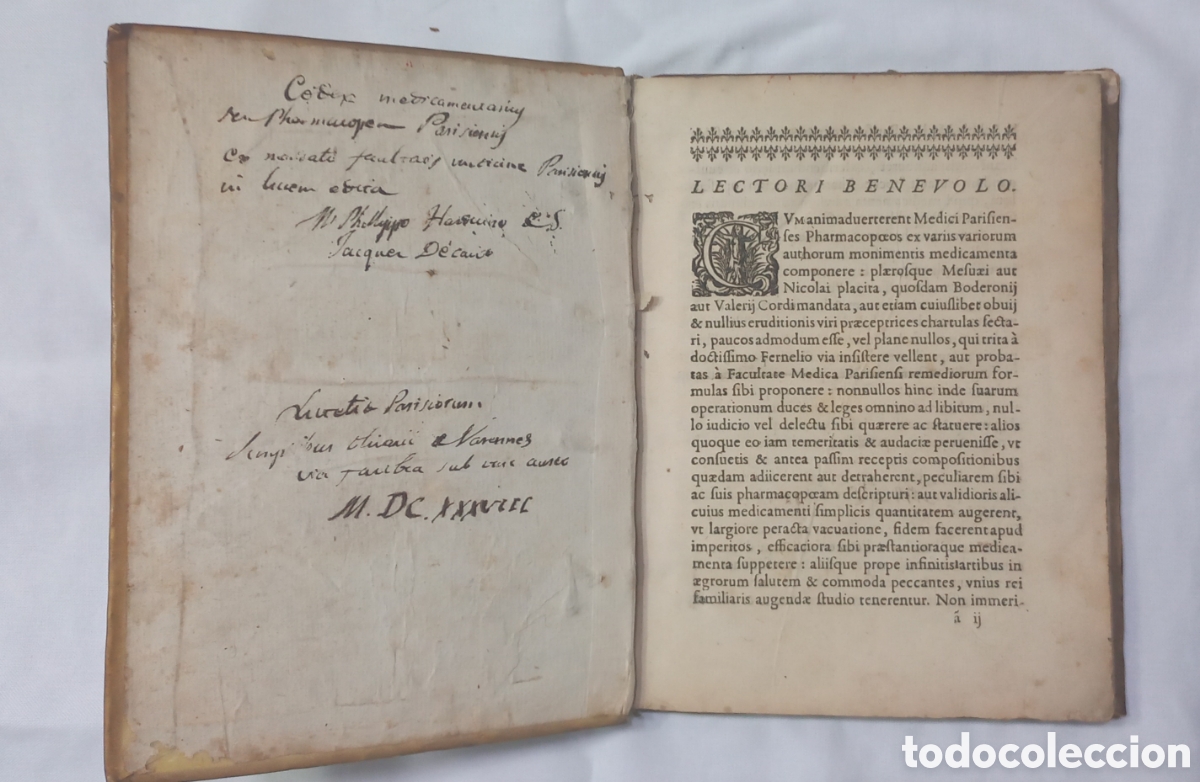 Codex medicamentarius
seu Pharmacopea Parisiensis
ex mandato facultatis medicinæ Parisiensis
in lucem edita
M. Philippo Harduino
Jacques Décano
Lutetia Parisiorum
Sumptibus Olivarii de Varennes
via sub vase aureo
M. DC. XXXVIII
LECTORI BENEVOLO.
CVM animaduerterent Medici Parisien-
ses Pharmacopœos ex variis variorum
authorum monimentis medicamenta
componere : plærosque Mesuæi aut
Nicolai placita, quosdam Boderonij
aut Valerij Cordi mandata, aut etiam cuiuslibet obuij
& nullius eruditionis viri præceptrices chartulas secta-
ri, paucos admodum esse, vel plane nullos, qui trita à
doctissimo Fernelio via insistere vellent, aut proba-
tas à Facultate Medica Parisiensi remediorum for-
mulas sibi proponere : nonnullos hinc inde suarum
operationum duces & leges omnino ad libitum, nul-
lo iudicio vel delectu sibi quærere ac statuere : alios
quoque eo iam temeritatis & audaciæ peruenisse, vt
consuetis & antea passim receptis compositionibus
quædam adiicerent aut detraherent, peculiarem sibi
ac suis pharmacopœam descripturi : aut validioris ali-
cuius medicamenti simplicis quantitatem augerent,
vt largiore peracta vacuatione, fidem facerent apud
imperitos, efficaciora sibi præstantioraque medica-
menta suppetere : aliisque prope infinitis artibus in
ægrorum salutem & commoda peccantes, vnius rei
familiaris augendæ studio tenerentur. Non immeri-
á ij
todocoleccion